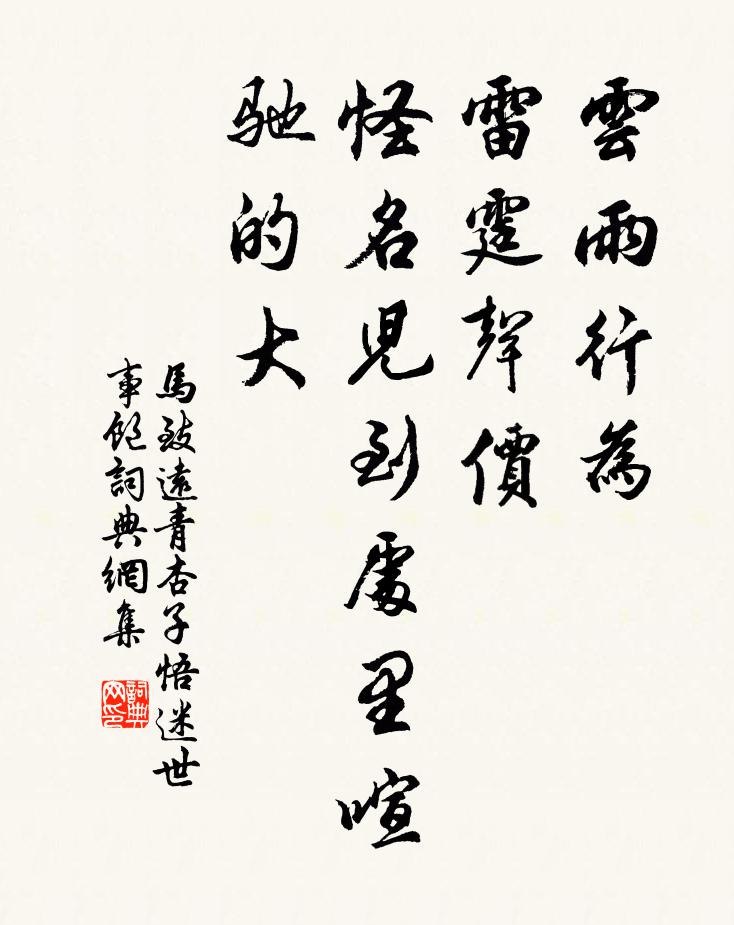 雲雨行為
雷霆聲價
怪名兒到處里喧
馳的大
馬致遠青杏子悟迷世
事飽詞典網集
詞典網印